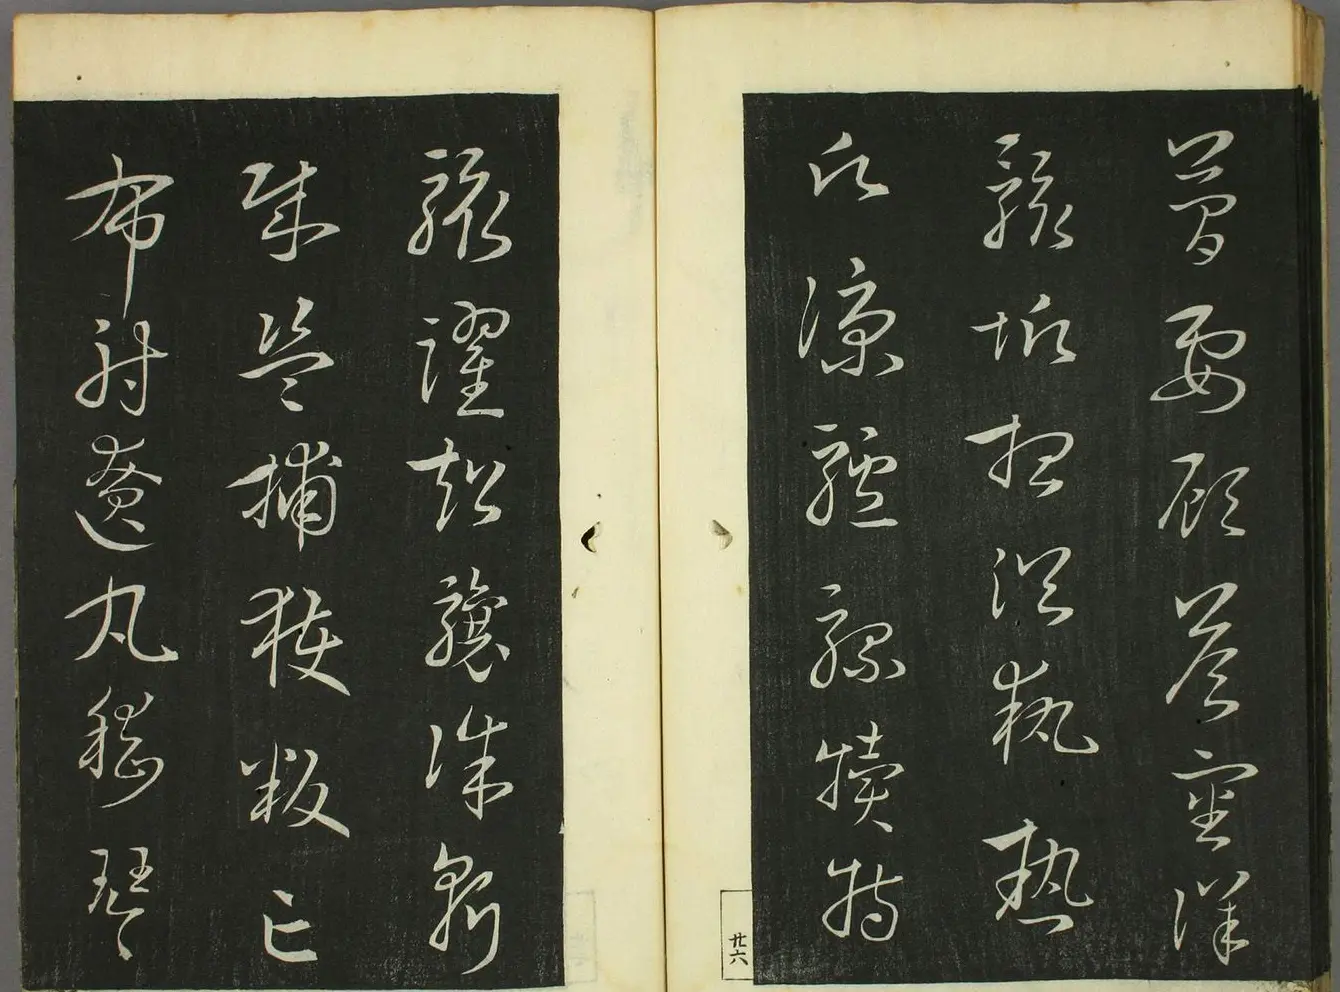 簡要顧答審詳
骸垢想浴執熱
願涼驢騾犢特
廿六
駭躍超驤誅斬
賊盗捕獲叛亡
布射遼丸嵇琴